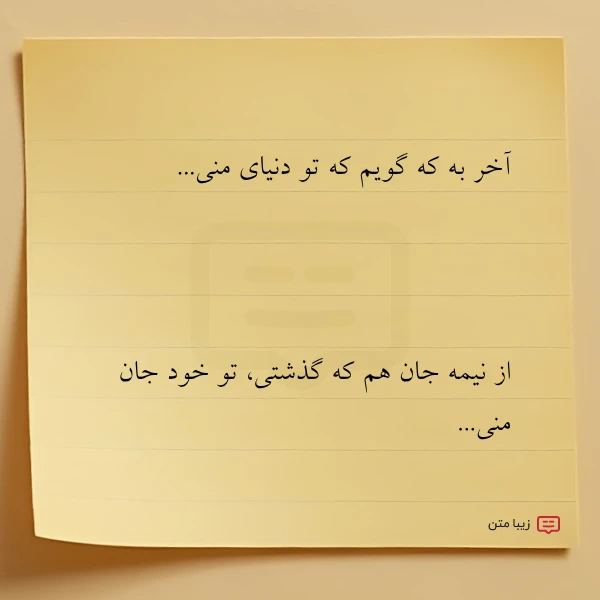 آخر به که گویم که تو دنیای منی...
از نیمه جان هم که گذشتی، تو خود جان
منی...
زیبا متن